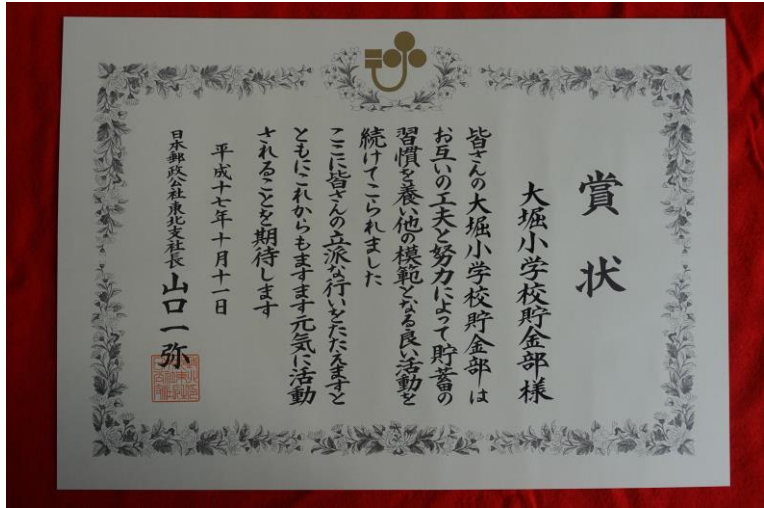 賞状
大堀小学校貯金部様
皆さんの大堀小学校貯金部は
お互いの工夫と努力によって貯蓄の
習慣を養い他の模範となる良い活動を
続けてこられました
ここに皆さんの立派な行いをたたえますと
ともにこれからもますます元気に活動
されることを期待します
平成十七年十月十一日
日本郵政公社東北支社長 山口一弥